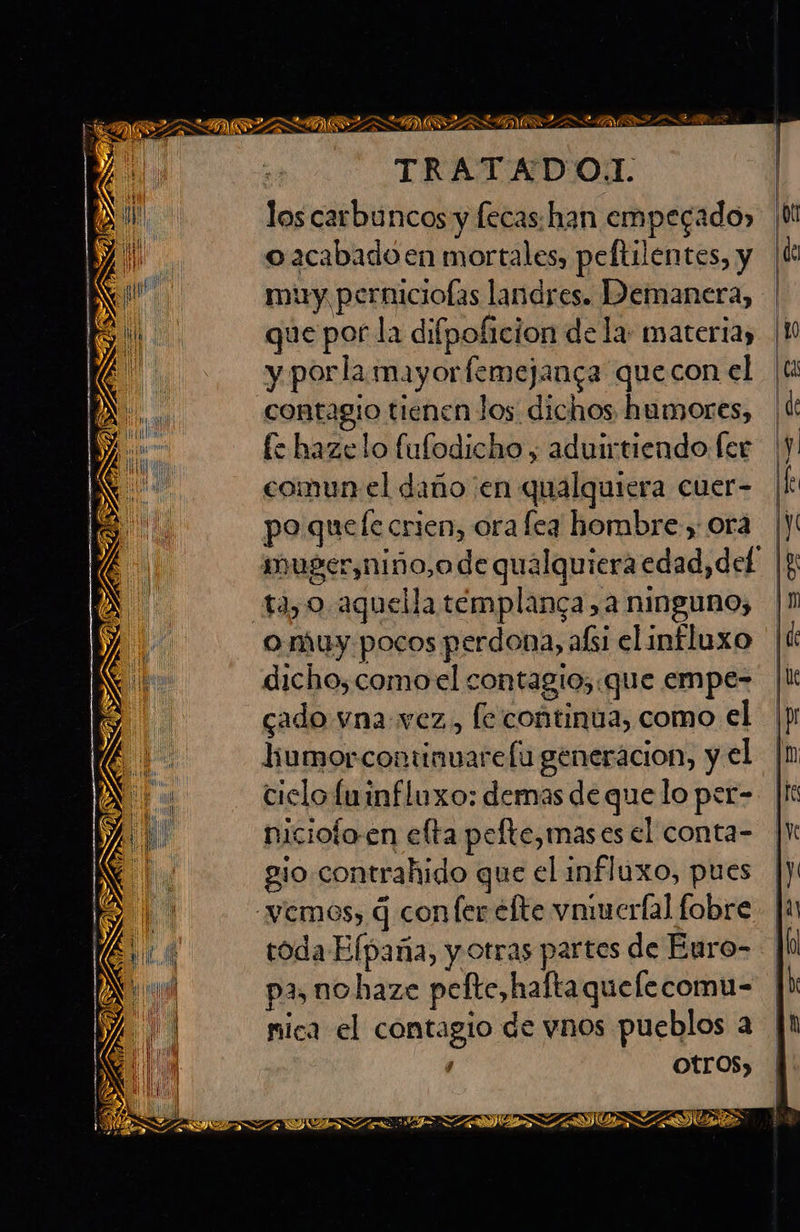 TRATADO.I.
los carbuncos y ſecas han empeçado,
o acabado en mortales, peſtilentes, y
muy pernicioſas landres. Demanera,
que por la diſpoſicion de la materia,
y por la mayor ſemejança que con el
contagio tienen los dichos humores,
ſe haze lo ſuſodicho, aduirtiendo ſer
comun el daño en qualquiera cuer-
po que ſe crien, ora ſea hombre, ora
muger, niño, o de qualquiera edad, deſ
ta, o aquella templança, a ninguno,
o muy pocos perdona, aſsi el influxo
dicho, como el contagio, que empe-
çado vna vez, ſe continua, como el
humor continuare ſu generacion, y el
cielo ſu influxo: demas de que lo per-
nicioſo en eſta peſte, mas es el conta-
gio contrahido que el influxo, pues
vemos, q̃ con ſer eſte vniuerſal ſobre
toda Eſpaña, y otras partes de Euro-
pa, no haze peſte, haſta que ſe comu-
nica el contagio de vnos pueblos a
otros,